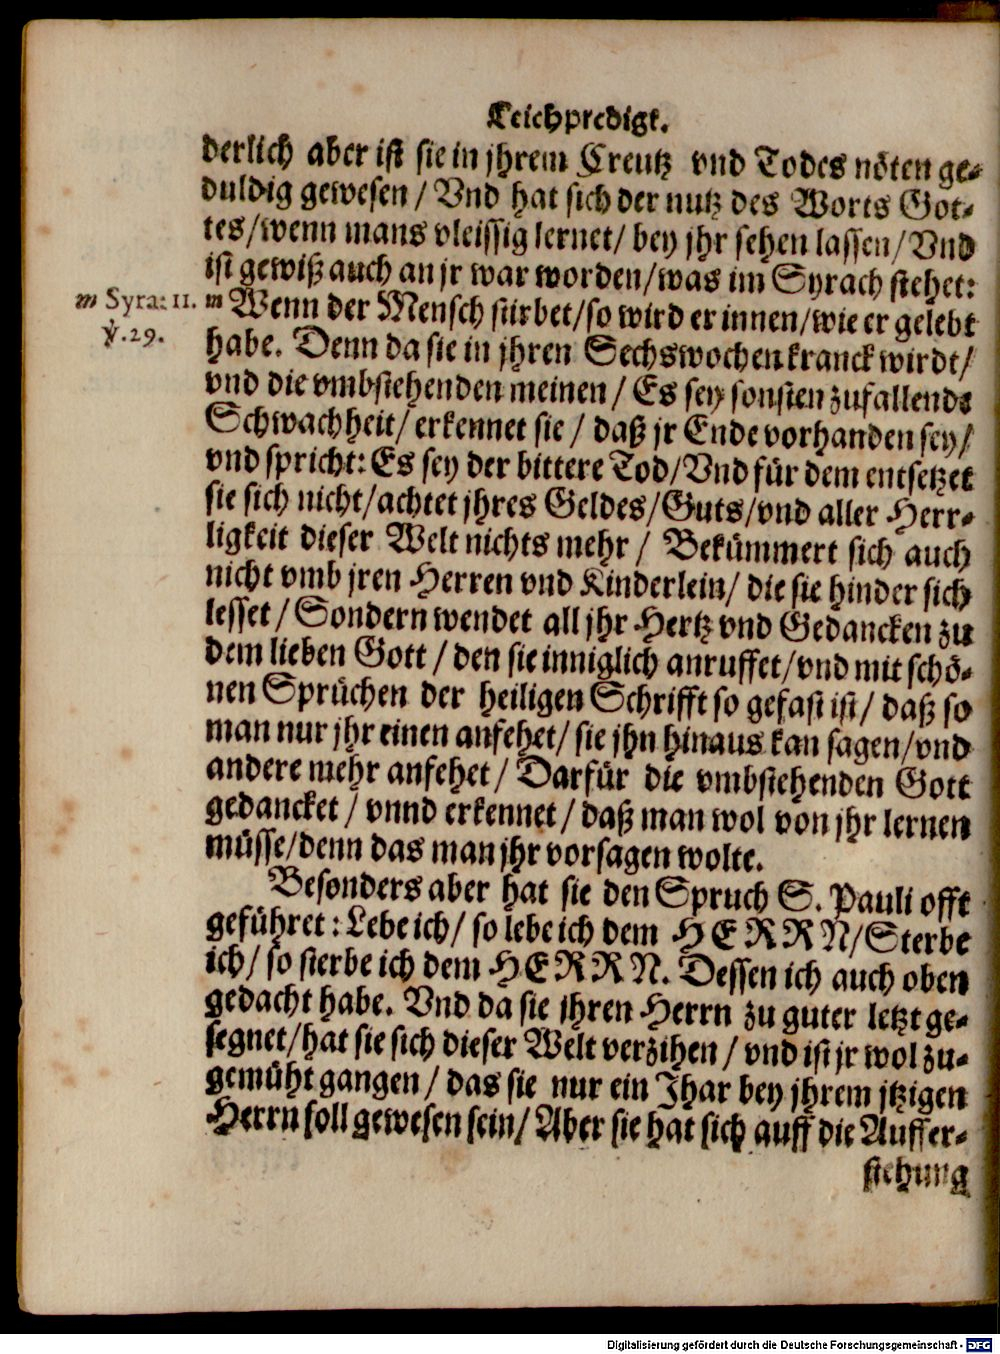 Leichpredigt.
derlich aber ist sie in jhrem Creutz vnd Todes nöten ge-
duldig gewesen / Vnd hat sich der nutz des Worts Got-
tes/wenn mans vleissig lernet/ bey jhr sehen lassen/Vnd
ist gewiß auch an jr war worden/was im Syrach stehet:
m Syra: 11. m Wenn der Mensch stirbet/so wird er innen/wie er gelebt
ỳ.29.
habe. Denn da sie in jhren Sechswochen kranck wirdt/
vnd die vmbstehenden meinen / Es sey sonsten zufallende
Schwachheit/ erkennet sie / daß jr Ende vorhanden sey/
vnd spricht: Es sey der bittere Tod/Vnd für dem entsetzet
sie sich nicht/achtet jhres Geldes/Guts/vnd aller Herr-
ligkeit dieser Welt nichts mehr / Bekümmert sich auch
nicht vmb jren Herren vnd Kinderlein/ die sie hinder sich
lesset / Sondern wendet all jhr Hertz vnd Gedancken zu
dem lieben Gott / den sie inniglich anruffet/vnd mit schö-
nen Sprüchen der heiligen Schrifft so gefast ist/ daß so
man nur jhr einen anfehet/ sie jhn hinaus kan sagen/vnd
andere mehr anfehet / Darfür die vmbstehenden Gott
gedancket / vnnd erkennet / daß man wol von jhr lernen
müsse/denn das man jhr vorsagen wolte.
Besonders aber hat sie den Spruch S. Pauli offt
geführet: Lebe ich/ so lebe ich dem HERRN/Sterbe
ich/ so sterbe ich dem HERRN. Dessen ich auch oben
gedacht habe. Vnd da sie jhren Herrn zu guter letzt ge-
segnet/hat sie sich dieser Welt verzihen / vnd ist jr wol zu-
gemüht gangen / das sie nur ein Jhar bey jhrem jtzigen
Herrn soll gewesen sein/ Aber sie hat sich auff die Auffer-
stehung
Digitalisierung gefördert durch die Deutsche Forschungsgemeinschaft - DFG